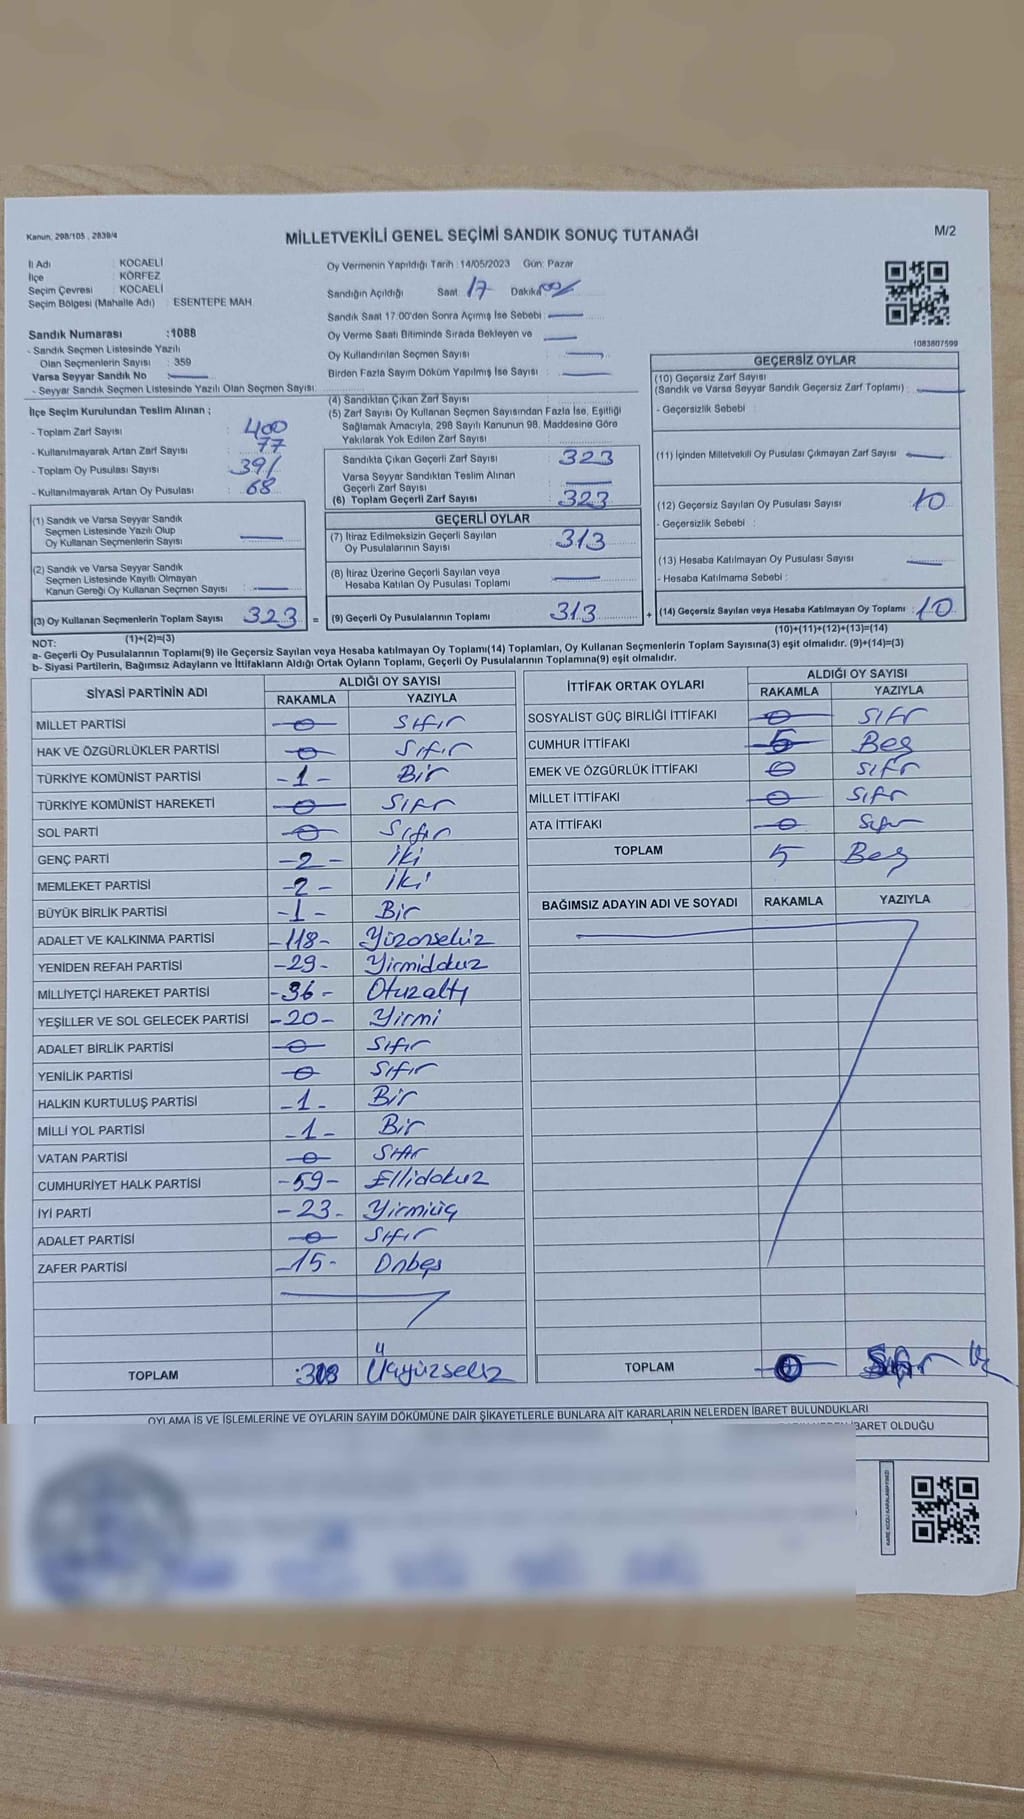 Kanun, 298/105 , 2839/4
MİLLETVEKİLİ GENEL SEÇİMİ SANDIK SONUÇ TUTANAĞI
M/2
İl Adı : KOCAELİ
İlçe : KÖRFEZ
Seçim Çevresi : KOCAELİ
Seçim Bölgesi (Mahalle Adı) : ESENTEPE MAH
Sandık Numarası :1088
- Sandık Seçmen Listesinde Yazılı
Olan Seçmenlerin Sayısı : 359
Varsa Seyyar Sandık No :
- Seyyar Sandık Seçmen Listesinde Yazılı Olan Seçmen Sayısı:
Oy Vermenin Yapıldığı Tarih :14/05/2023 Gün: Pazar
Sandığın Açıldığı Saat 17 Dakika 00
Sandık Saat 17.00'den Sonra Açımış İse Sebebi :
Oy Verme Saati Bitiminde Sırada Bekleyen ve
Oy Kullandırılan Seçmen Sayısı :
Birden Fazla Sayım Döküm Yapılmış İse Sayısı :
1083807599
İlçe Seçim Kurulundan Teslim Alınan ;
- Toplam Zarf Sayısı : 400
- Kullanılmayarak Artan Zarf Sayısı : 77
- Toplam Oy Pusulası Sayısı : 391
- Kullanılmayarak Artan Oy Pusulası : 68
(1) Sandık ve Varsa Seyyar Sandık
Seçmen Listesinde Yazılı Olup
Oy Kullanan Seçmenlerin Sayısı :
(2) Sandık ve Varsa Seyyar Sandık
Seçmen Listesinde Kayıtlı Olmayan
Kanun Gereği Oy Kullanan Seçmen Sayısı :
(3) Oy Kullanan Seçmenlerin Toplam Sayısı : 323 =
(1)+(2)=(3)
(4) Sandıktan Çıkan Zarf Sayısı :
(5) Zarf Sayısı Oy Kullanan Seçmen Sayısından Fazla İse, Eşitliği
Sağlamak Amacıyla, 298 Sayılı Kanunun 98. Maddesine Göre
Yakılarak Yok Edilen Zarf Sayısı :
Sandıkta Çıkan Geçerli Zarf Sayısı : 323
Varsa Seyyar Sandıktan Teslim Alınan
Geçerli Zarf Sayısı :
(6) Toplam Geçerli Zarf Sayısı : 323
GEÇERLİ OYLAR
(7) İtiraz Edilmeksizin Geçerli Sayılan
Oy Pusulalarının Sayısı : 313
(8) İtiraz Üzerine Geçerli Sayılan veya
Hesaba Katılan Oy Pusulası Toplamı :
(9) Geçerli Oy Pusulalarının Toplamı : 313 +
GEÇERSİZ OYLAR
(10) Geçersiz Zarf Sayısı
(Sandık ve Varsa Seyyar Sandık Geçersiz Zarf Toplamı) :
- Geçersizlik Sebebi :
(11) İçinden Milletvekili Oy Pusulası Çıkmayan Zarf Sayısı :
(12) Geçersiz Sayılan Oy Pusulası Sayısı : 10
- Geçersizlik Sebebi :
(13) Hesaba Katılmayan Oy Pusulası Sayısı :
- Hesaba Katılmama Sebebi :
(14) Geçersiz Sayılan veya Hesaba Katılmayan Oy Toplamı : 10
(10)+(11)+(12)+(13)=(14)
NOT:
a- Geçerli Oy Pusulalarının Toplamı(9) ile Geçersiz Sayılan veya Hesaba katılmayan Oy Toplamı(14) Toplamları, Oy Kullanan Seçmenlerin Toplam Sayısına(3) eşit olmalıdır. (9)+(14)=(3)
b- Siyasi Partilerin, Bağımsız Adayların ve İttifakların Aldığı Ortak Oyların Toplamı, Geçerli Oy Pusulalarının Toplamına(9) eşit olmalıdır.
SİYASİ PARTİNİN ADI ALDIĞI OY SAYISI
RAKAMLA YAZIYLA
MİLLET PARTİSİ 0 Sıfır
HAK VE ÖZGÜRLÜKLER PARTİSİ 0 Sıfır
TÜRKİYE KOMÜNİST PARTİSİ -1- Bir
TÜRKİYE KOMÜNİST HAREKETİ 0 Sıfr
SOL PARTİ 0 Sıfır
GENÇ PARTİ -2- İki
MEMLEKET PARTİSİ -2- İki
BÜYÜK BİRLİK PARTİSİ -1- Bir
ADALET VE KALKINMA PARTİSİ -118- Yüzonsekiz
YENİDEN REFAH PARTİSİ -29- Yirmidokuz
MİLLİYETÇİ HAREKET PARTİSİ -36- Otuzaltı
YEŞİLLER VE SOL GELECEK PARTİSİ -20- Yirmi
ADALET BİRLİK PARTİSİ 0 Sıfır
YENİLİK PARTİSİ 0 Sıfır
HALKIN KURTULUŞ PARTİSİ -1- Bir
MİLLİ YOL PARTİSİ -1- Bir
VATAN PARTİSİ 0 Sıfır
CUMHURİYET HALK PARTİSİ -59- Ellidokuz
İYİ PARTİ -23- Yirmiüç
ADALET PARTİSİ 0 Sıfır
ZAFER PARTİSİ -15- Onbeş
TOPLAM :308 Üçyüzsekiz
İTTİFAK ORTAK OYLARI ALDIĞI OY SAYISI
RAKAMLA YAZIYLA
SOSYALİST GÜÇ BİRLİĞİ İTTİFAKI 0 Sıfr
CUMHUR İTTİFAKI 5 Beş
EMEK VE ÖZGÜRLÜK İTTİFAKI 0 Sıfr
MİLLET İTTİFAKI 0 Sıfr
ATA İTTİFAKI 0 Sıfır
TOPLAM 5 Beş
BAĞIMSIZ ADAYIN ADI VE SOYADI RAKAMLA YAZIYLA
TOPLAM 0 Sıfır
OYLAMA İŞ VE İŞLEMLERİNE VE OYLARIN SAYIM DÖKÜMÜNE DAİR ŞİKAYETLERLE BUNLARA AİT KARARLARIN NELERDEN İBARET BULUNDUKLARI
İBARET OLDUĞU